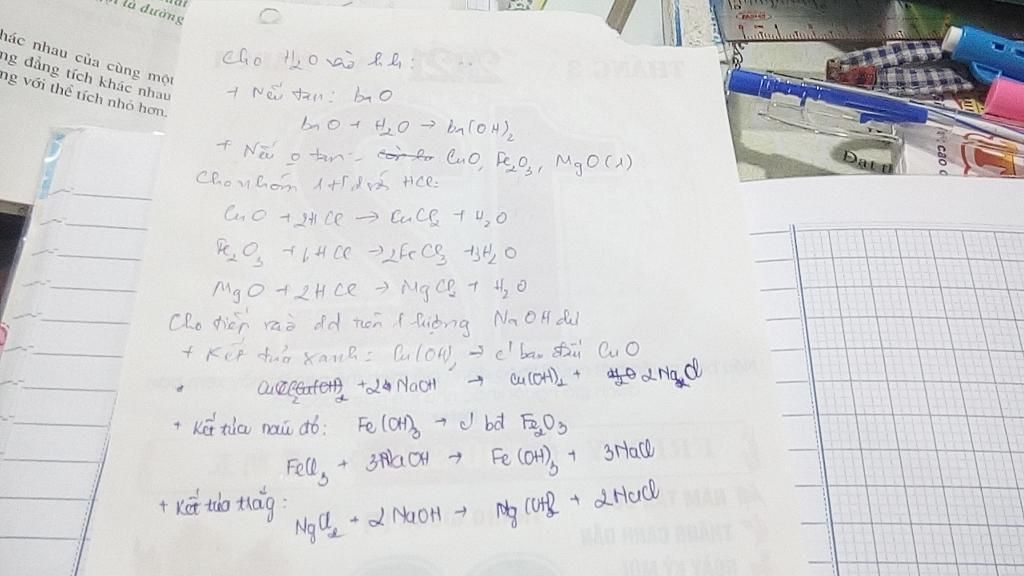 ại là đường
hác nhau của cùng một
ng đẳng tích khác nhau
ng với thể tích nhỏ hơn.
Cho H₂O vào hh:
+ Nếu tan: BaO
BaO + H₂O → Ba(OH)₂
+ Nếu 0 tan: CuO, Fe₂O₃, MgO (1)
Cho nhóm 1 + HCl:
CuO + 2HCl → CuCl₂ + H₂O
Fe₂O₃ + 6HCl → 2FeCl₃ + 3H₂O
MgO + 2HCl → MgCl₂ + H₂O
Cho tiếp vào dd trên 1 lượng NaOH dư
+ Kết tủa xanh: Cu(OH)₂ → c' ban đầu CuO
+ 2NaOH → Cu(OH)₂ + 2NaCl
+ Kết tủa nâu đỏ: Fe(OH)₃ → c' bđ Fe₂O₃
FeCl₃ + 3NaOH → Fe(OH)₃ + 3NaCl
+ Kết tủa trắng:
MgCl₂ + 2NaOH → Mg(OH)₂ + 2NaCl